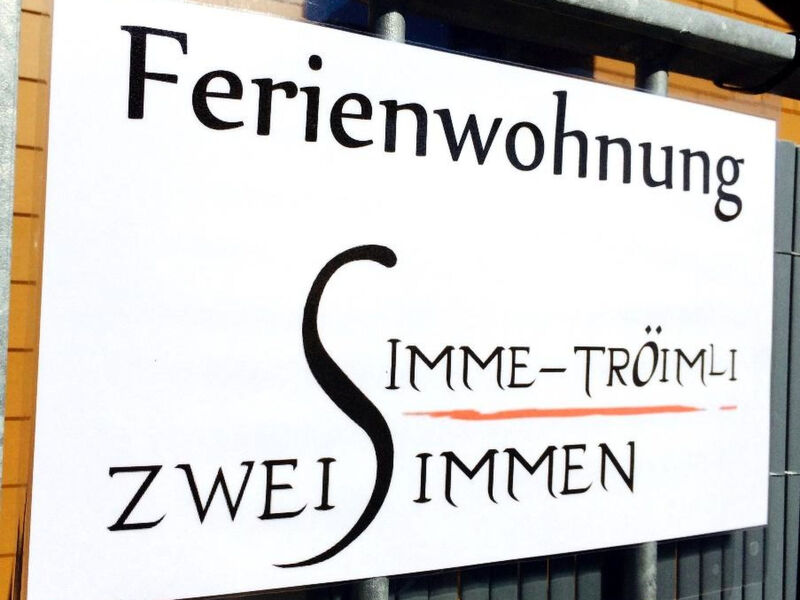 Ferienwohnung
SIMME-TRÖIMLI
ZWEISIMMEN